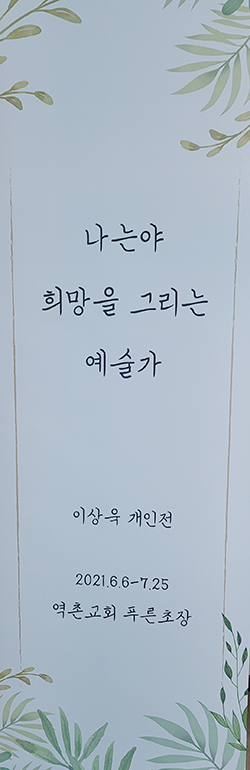 나는야
희망을 그리는
예술가
이상욱 개인전
2021.6.6-7.25
역촌교회 푸른초장